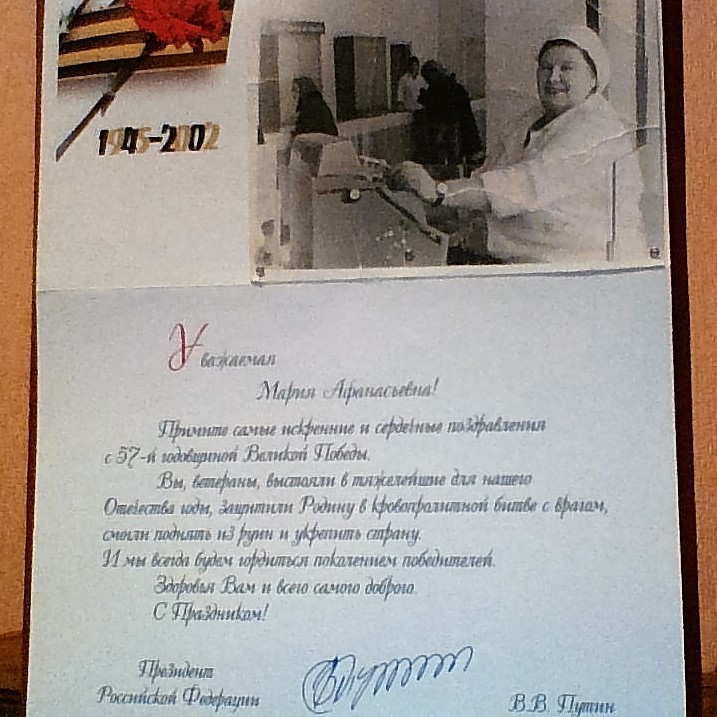 1945-2002
Уважаемая
Мария Афанасьевна!
Примите самые искренние и сердечные поздравления
с 57-й годовщиной Великой Победы.
Вы, ветераны, выстояли в тяжелейшие для нашего
Отечества годы, защитили Родину в кровопролитной битве с врагом,
смогли поднять из руин и укрепить страну.
И мы всегда будем гордиться поколением победителей.
Здоровья Вам и всего самого доброго.
С Праздником!
Президент
Российской Федерации
В.В. Путин